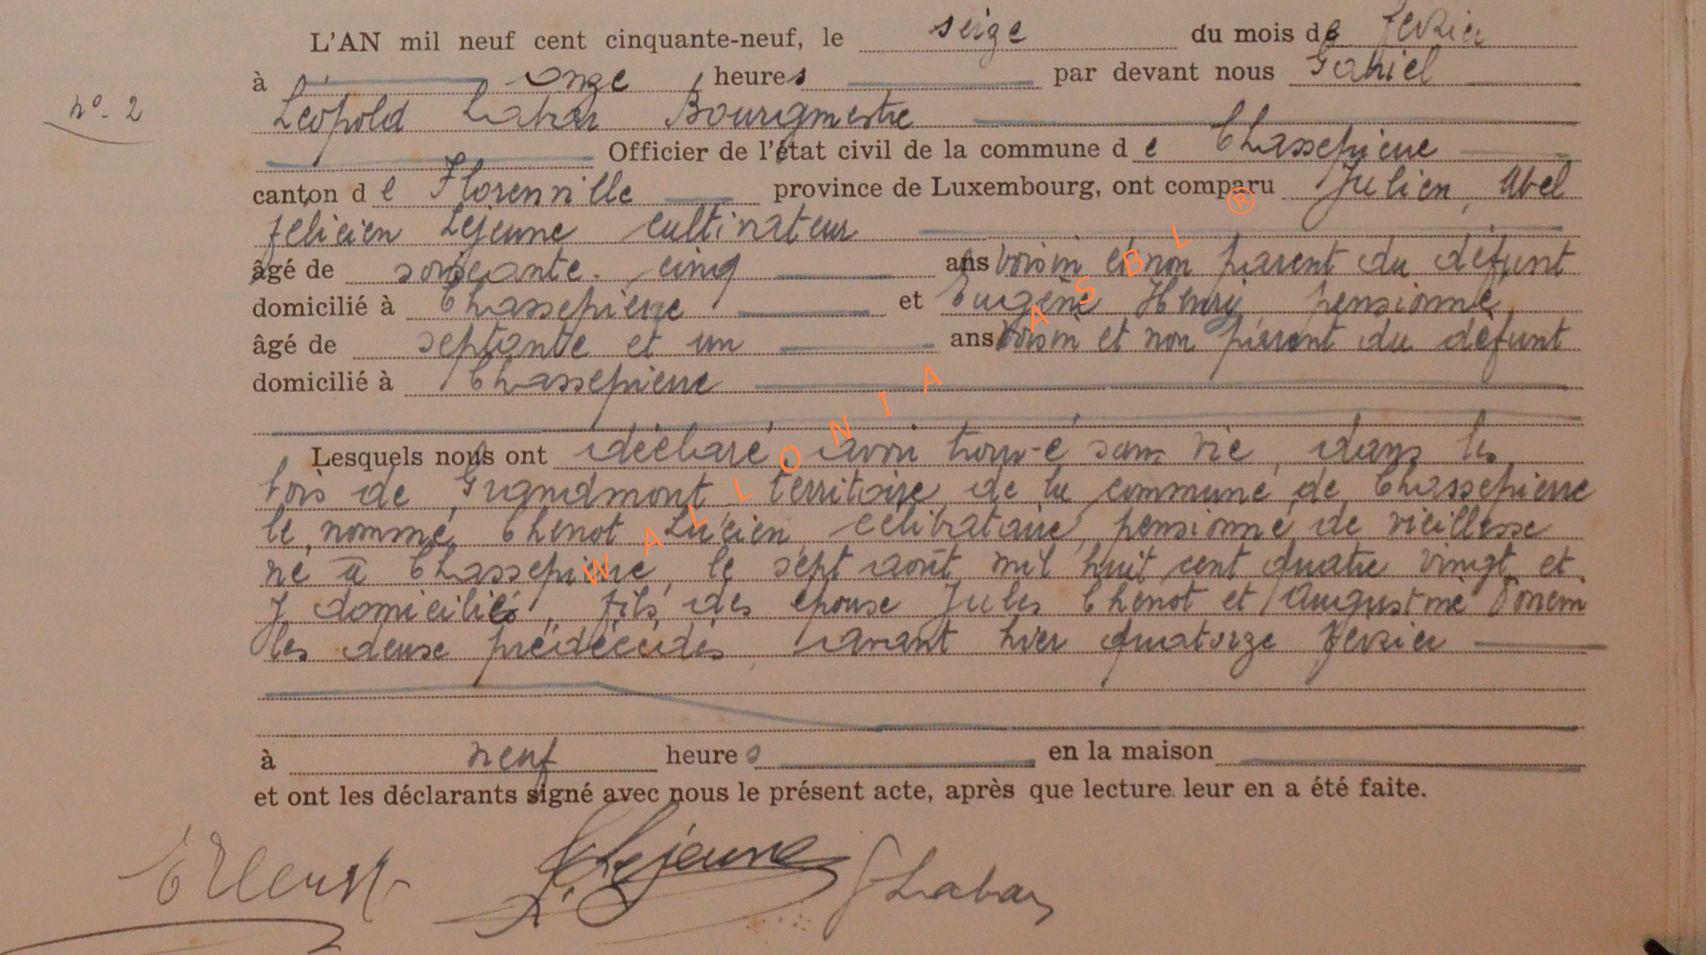 L'AN mil neuf cent cinquante-neuf, le seize du mois de février
à onze heures par devant nous Gabriel
n° 2
Léopold Labar Bourgmestre
Officier de l'état civil de la commune de Chassepierre
canton de Florenville province de Luxembourg, ont comparu Julien, Abel
Felicien Lejeune cultivateur
âgé de soixante. cinq ans voisin et non parent du défunt
domicilié à Chassepierre et Eugène Henry pensionné
âgé de septante et un ans voisin et non parent du défunt
domicilié à Chassepierre
Lesquels nous ont déclaré avoir trouvé sans vie, dans les
bois de Grandmont territoire de la commune de Chassepierre
le nommé Chenot Lucien, célibataire, pensionné de vieillesse
né à Chassepierre, le sept août mil huit cent quatre vingt et
y domicilié, fils des épouse Jules Chenot et Augustine
les deuse prédécédés, avant hier quatorze février
à neuf heures en la maison
et ont les déclarants signé avec nous le présent acte, après que lecture leur en a été faite.
Lejeune GLabar
WALLONIA ASBL ®